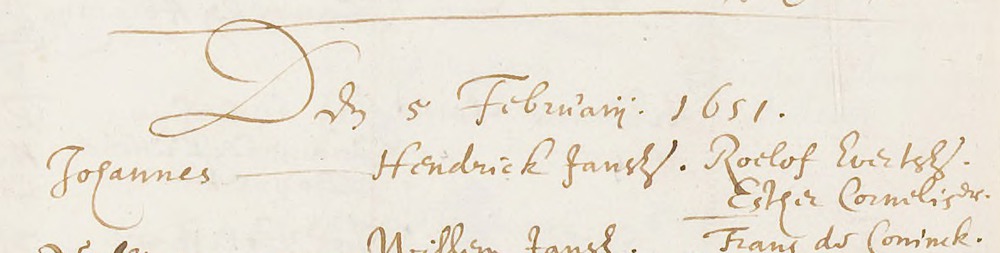 Den 5 Februarij. 1651.
Johannes Hendrick Jansz. Roelof Evertsz.
Esther Cornelisdr.
Willem Jansz. Frans de Coninck.